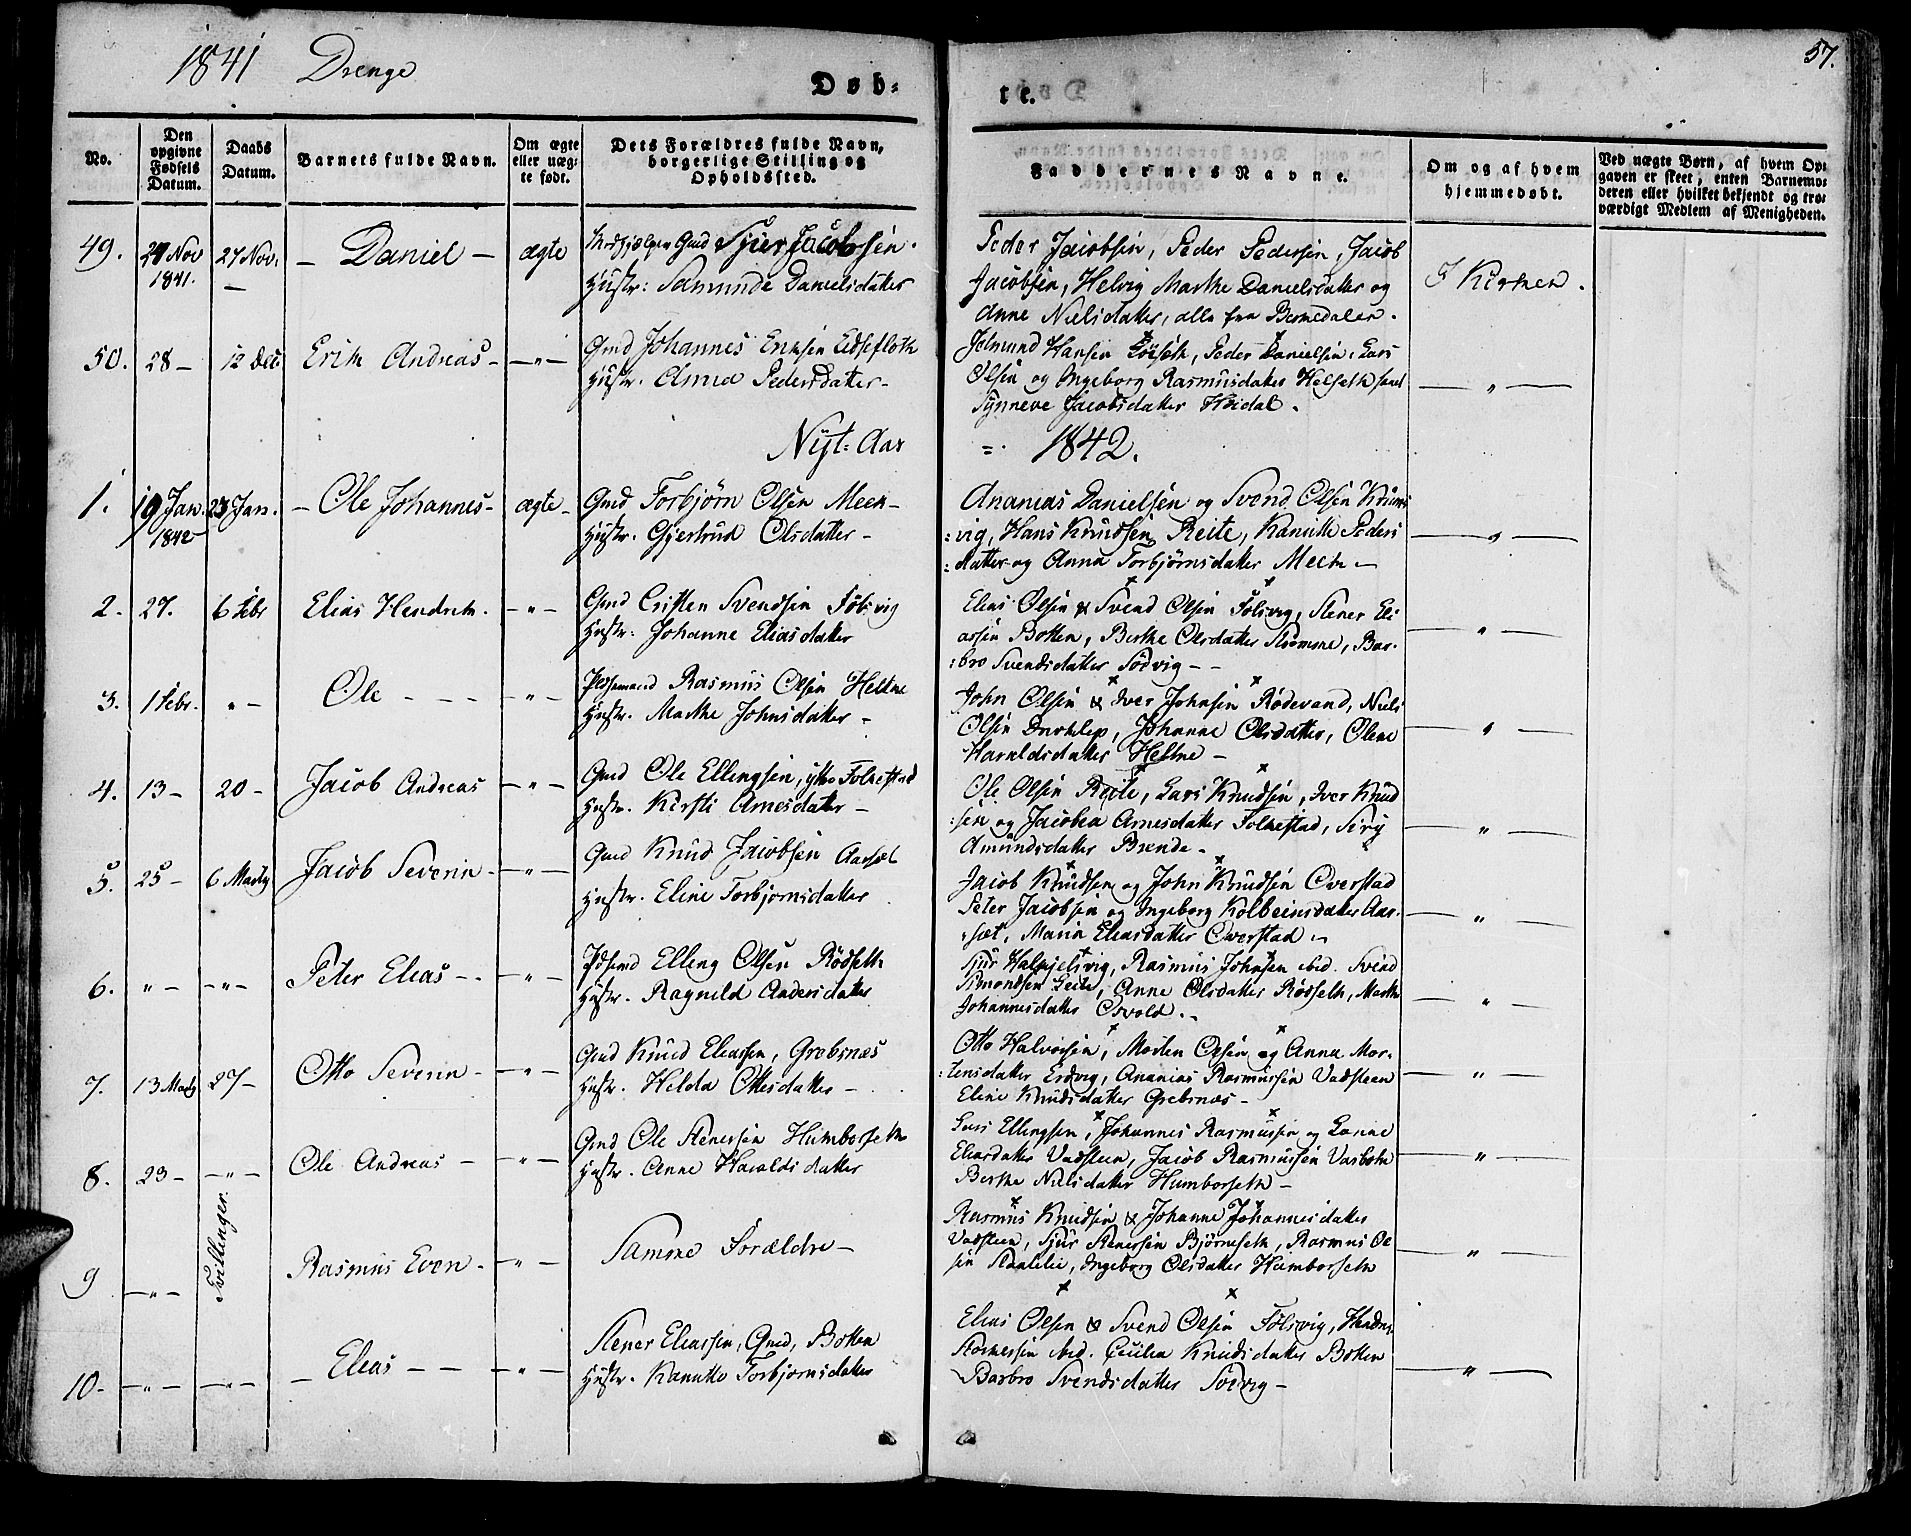 1841 Drenge
57.
Døb-
te.
No.
Den opgivne Fødsels Datum.
Daabs Datum.
Barnets fulde Navn.
Om ægte eller uæg- te født.
Dets Forældres fulde Navn, borgerlige Stilling og Opholdssted.
Faddernes Navne.
Om og af hvem hjemmedøbt.
Ved uægte Børn, af hvem Op-
gaven er skeet, enten Barnemo-
deren eller hvilket bekjendt og tro-
værdigt Medlem af Menigheden.
49. 27 Nov 1841. 27 Nov. – Daniel – ægte
Gmd Sjur Jacobsen.
Hustr: Samunde Danielsdatter
Peder Jacobsen, Peder Pedersen, Jacob
Jacobsen, Helvig Marthe Danielsdatter og
Anne Nielsdatter, alle fra
I Kirken.
50. 28 – 12 Dec. Erik Andreas – – " –
Gmd Johannes Eriksen Eidsefloth
Hustr. Anna Pedersdatter –
Hansen Løiseth, Peder Danielsen, Lars
Olsen og Ingeborg Rasmusdatter Helseth samt
Synneve Jacobsdatter Høidal.
– " –
Nyt-Aar
=. 1842.
1. 19 Jan. 1842 23 Jan. – Ole Johannes – ægte –
Gmd Torbjørn Olsen Meek –
Hustr. Gjertrud Olsdatter –
Ananias Danielsen og Svend Olsen Krums
:vig, Hans Knudsen Reite, Kanutte Peders
:datter og Anna Torbjørnsdatter Meek –
– " –
2. 27. 6 Febr Elias Hendrik. – " –
Gmd Cristen Svendsen Sølsvig
Hustr: Johanne Eliasdatter
Elias Olsen & Svend Olsen Folsvig, Stener Eli
assen Botten, Berthe Olsdatter Strømme, Bar-
:bro Svendsdatter Sødvig – –
– " –
3. 1 Febr. " – Ole – – – – " –
Rasmus Olsen Heltne
Hustr. Marthe Johnsdatter –
John Olsen & Iver Johnsen Rødevand, Niels
Olsen, Johanne Olsdatter, Olene
Haraldsdatter Heltne –
– " –
4. 13 – 20 – Jacob Andreas – " –
Gmd Ole Ellingsen, ytre Folkestad
Hustr. Kirsti Arnesdatter –
Ole Olsen Reite, Lars Knudsen, Iver Knud
:sen og Jacobea Arnesdatter Folkestad, Siry
Amundsdatter Brende –
– " –
5. 25 – 6 Marty Jacob Severin – " –
Gmd Knud Jacobsen Aarset
Hustr. Eline Torbjørnsdatter
Jacob Knudsen og John Knudsen Overstad
Peter Jacobsen og Ingeborg Kolbeinsdatter Aar-
:sæt, Maria Eliasdatter Overstad –
– " –
6. " – – " – Peter Eleas – . – " –
Elling Olsen Rødseth
Hustr. Ragnild Andersdatter
Sjur Halkjelsvig, Rasmus Johnsen ibid. Svend
Simondsen Leite, Anne Olsdatter Rødseth, Marthe
Johannesdatter Osvold. –
– " –
7. 13 Marty 27 – Otto Severin – – " –
Gmd Knud Eleassen, Grebsnæs
Hustr. Helda Ottesdatter –
Otto Halvorsen, Morten Olsen og Anna Mor-
:tensdatter Ervig, Ananias Rasmussen Vadsteen
Eline Knudsdatter Grebsnæs –
– " –
8. 23 – – " – Ole Andreas – – " –
Gmd Ole Stenersen Humborseth
Hustr. Anne Haralds datter
Lars Ellingsen, Johannes Rasmussen og Lanne
Eleasdatter Vadsteen, Jacob Rasmussen Vasboth
Berthe Nielsdatter Humborseth –
– " –
Tvillinger.
9 – " – Rasmus Even – – " –
Samme Forældre –
Rasmus Knudsen & Johanne Johannesdatter
Vadsteen, Sjur Stenersen Bjørneseth, Rasmus Ol
sen Staalelie, Ingeborg Olsdatter Humborseth
– " –
10. – " – – " – – Eleas – – – " –
Stener Eleassen, Gmd, Botten
Hustr. Kanutte Torbjørnsdatter
Elias Olsen & Svend Olsen Folsvig,
ibid. Cecilia Knudsdatter Botten
Barbro Svendsdatter Sødvig –
– " –